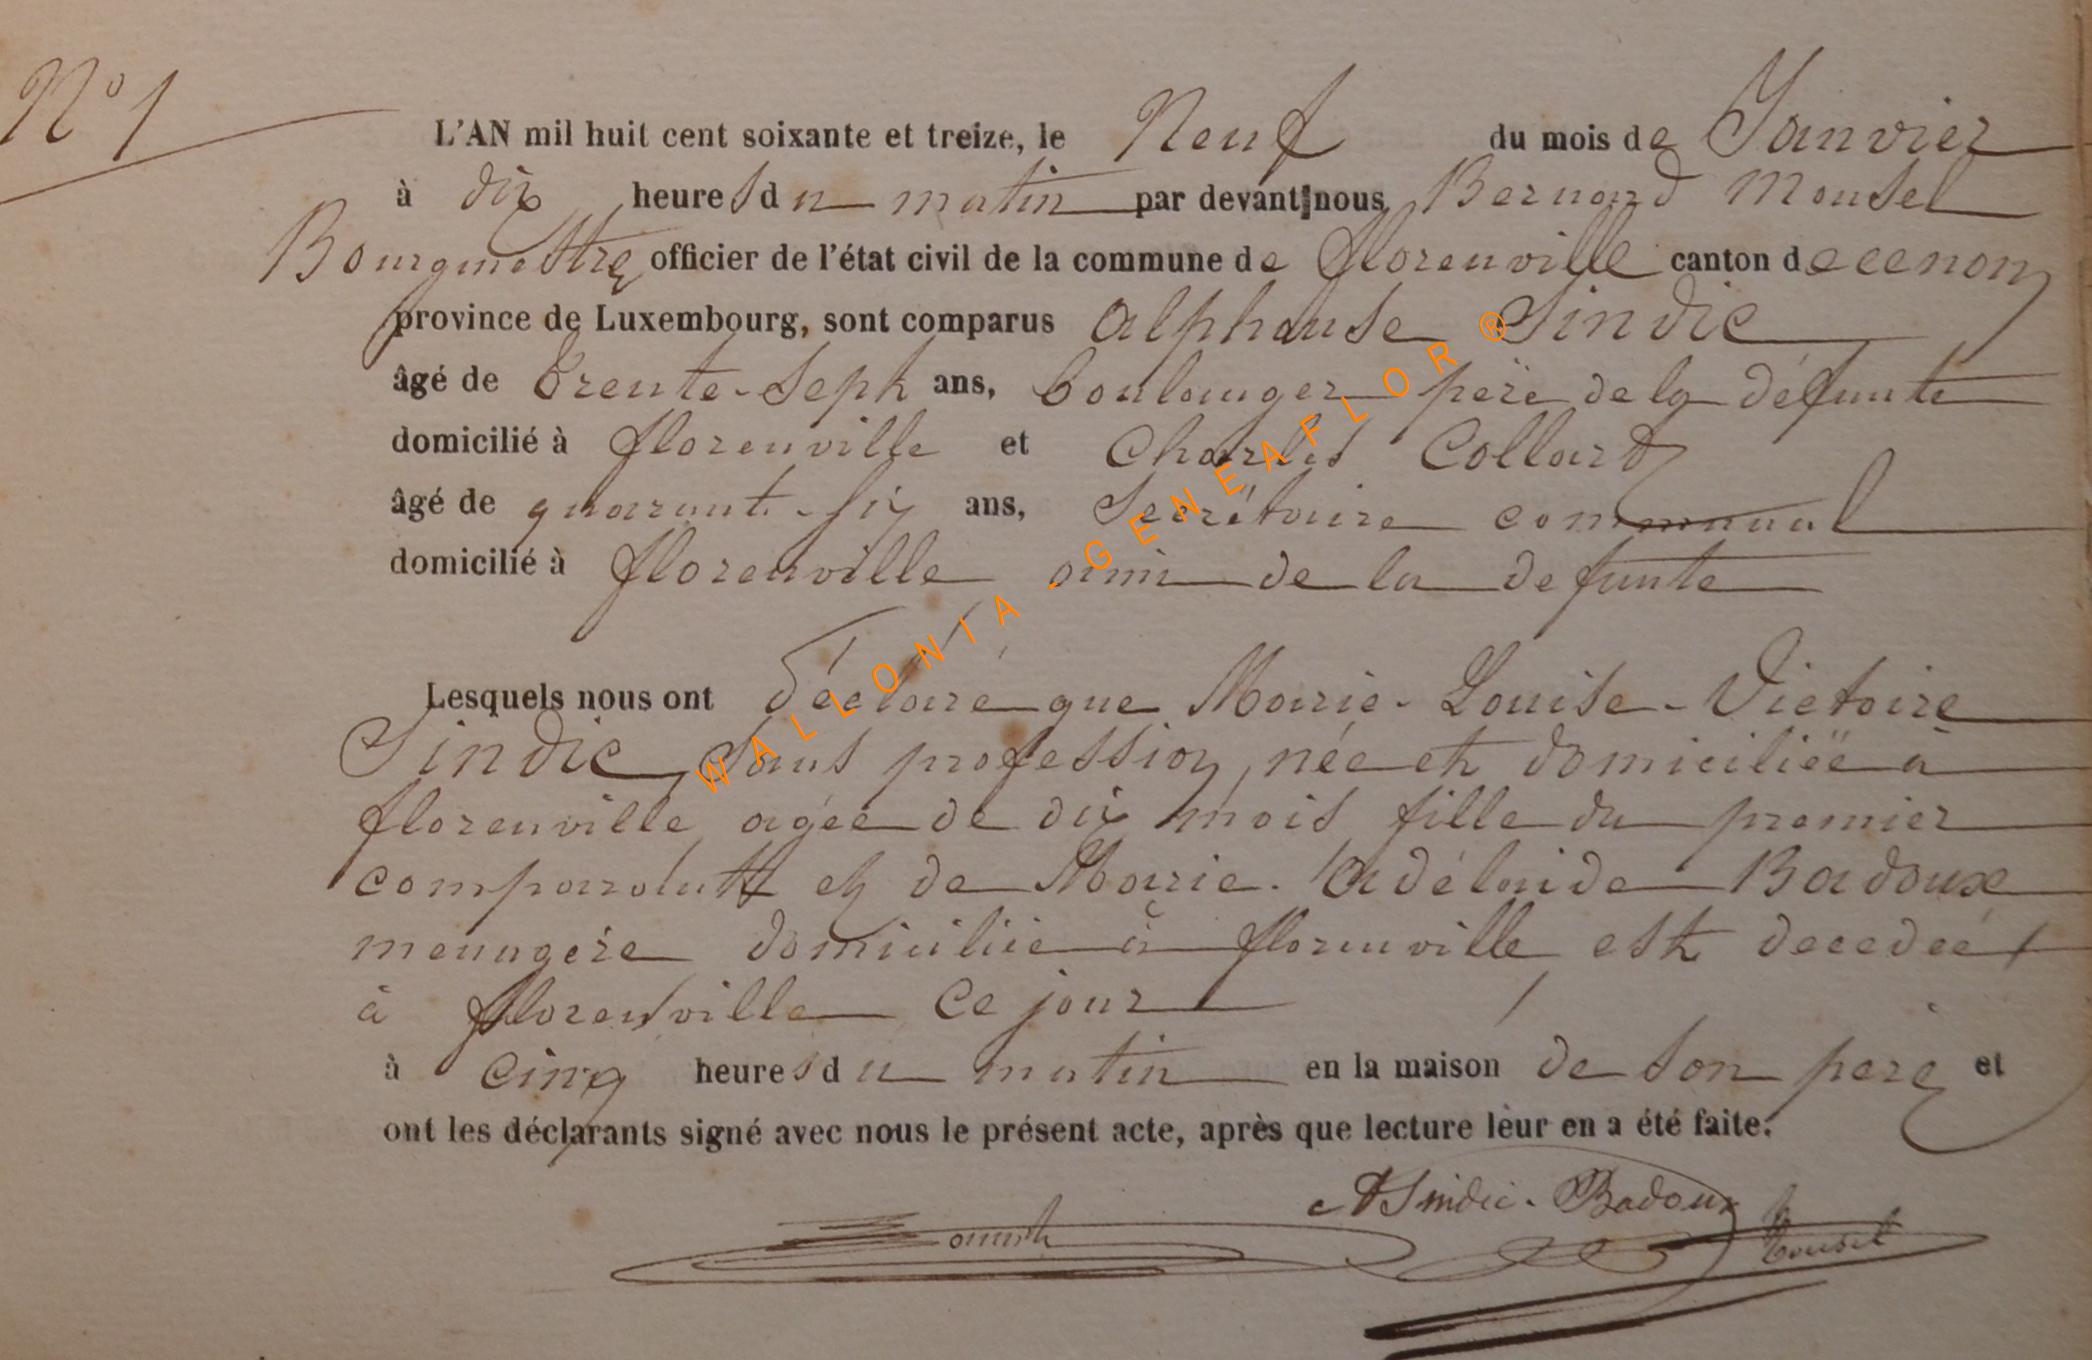 N° 1
L'AN mil huit cent soixante et treize, le Neuf du mois de Janvier
à dix heures du matin par devant nous Bernard Mousel
Bourgmestre officier de l'état civil de la commune de florenville canton de ce nom
province de Luxembourg, sont comparus Alphonse Sindic
âgé de trente-sept ans, boulanger père de la défunte
domicilié à florenville et Charles Collard
âgé de quarante-six ans, Secrétaire communal
domicilié à florenville ami de la defunte
Lesquels nous ont déclaré que Marie-Louise-Victoire
Sindic, sans profession, née et domiciliée à
florenville agée de dix mois fille du premier
comparant et de Marie-Adélaide Badoux
menagère domiciliée à florenville est decedée
à florenville ce jour
à cinq heures du matin en la maison de son père et
ont les déclarants signé avec nous le présent acte, après que lecture leur en a été faite.
A Sindic-Badoux
Mousel
WALLONIA - GENEAFLOR ®